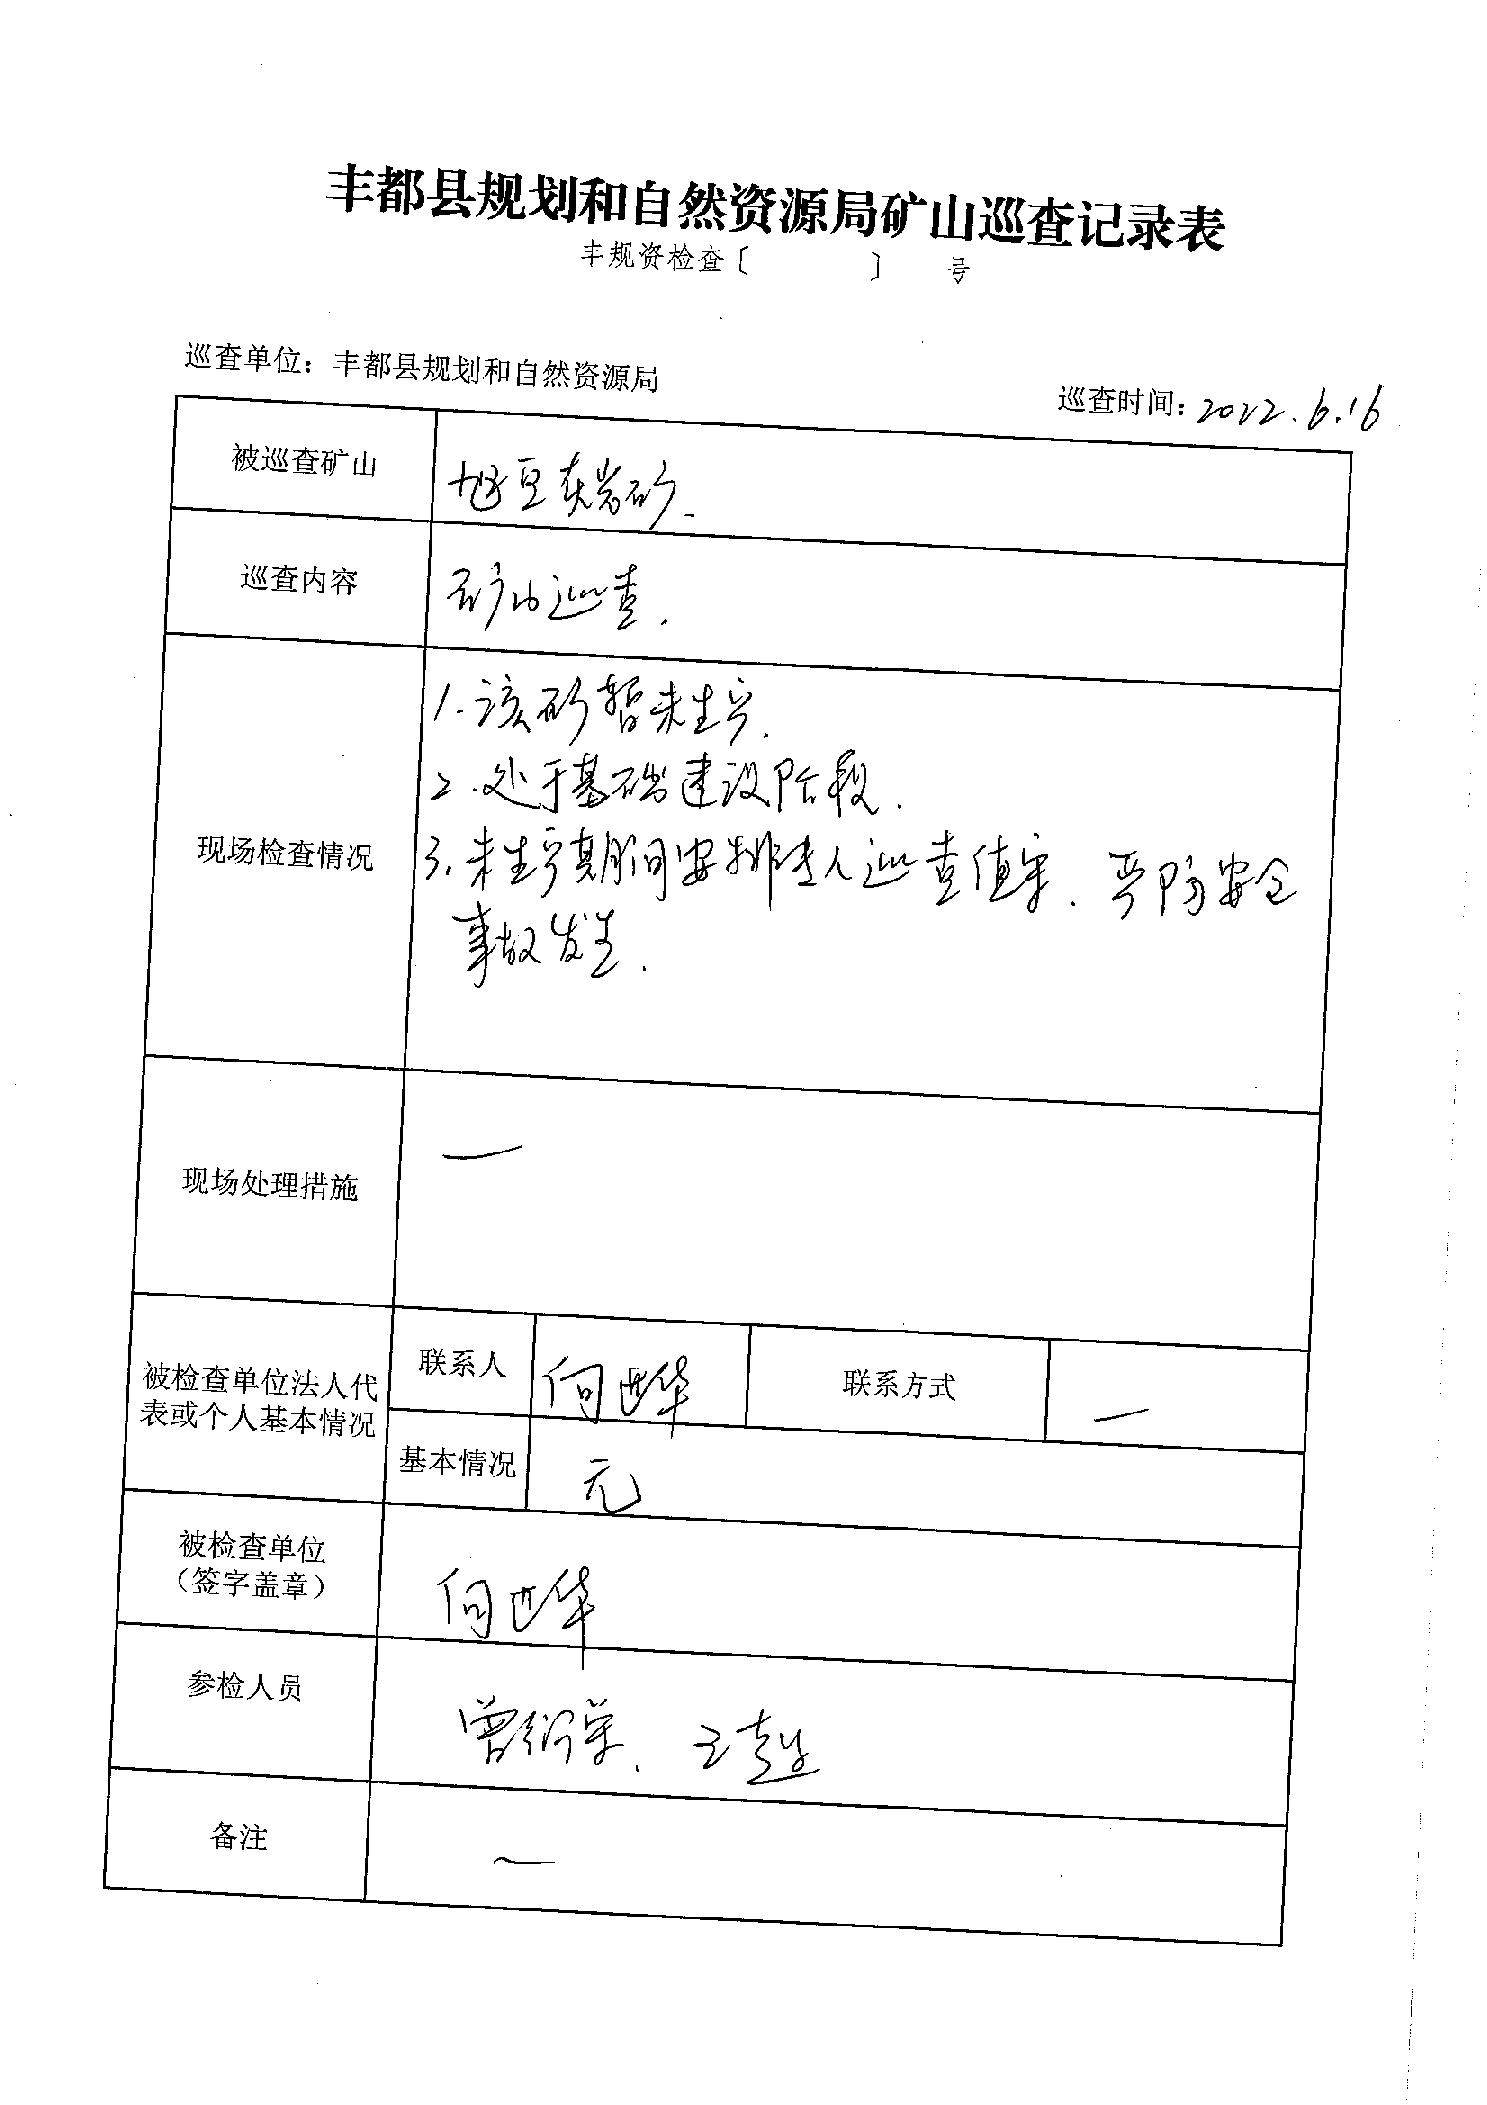 丰都县规划和自然资源局矿山巡查记录表
丰规资检查〔 〕 号
巡查单位：丰都县规划和自然资源局
巡查时间：2022.6.16
被巡查矿山
岩矿.
巡查内容
矿山巡查.
现场检查情况
1.该矿暂未生产.
2.处于基础建设阶段.
3.未生产期间安排专人巡查值守.严防安全
事故发生.
现场处理措施
一
被检查单位法人代
表或个人基本情况
联系人
向世华
联系方式
一
基本情况
无
被检查单位
（签字盖章）
向世华
参检人员
曾绍荣、王超
备注
一